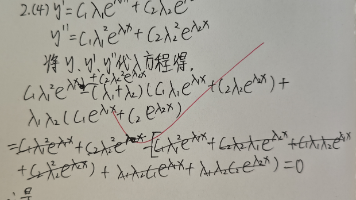 2.(4) y'=C₁λ₁e^{λ₁x}+C₂λ₂e^{λ₂x}
y''=C₁λ₁²e^{λ₁x}+C₂λ₂²e^{λ₂x}
将 y、y'、y''代入方程得,
C₁λ₁²e^{λ₁x}+C₂λ₂²e^{λ₂x}-(λ₁+λ₂)(C₁λ₁e^{λ₁x}+C₂λ₂e^{λ₂x})+
λ₁λ₂(C₁e^{λ₁x}+C₂e^{λ₂x})
=C₁λ₁²e^{λ₁x}+C₂λ₂²e^{λ₂x}-[C₁λ₁²e^{λ₁x}+C₂λ₂λ₁e^{λ₂x}+C₁λ₁λ₂e^{λ₁x}
+C₂λ₂²e^{λ₂x})+λ₁λ₂C₁e^{λ₁x}+λ₁λ₂C₂e^{λ₂x})=0
是